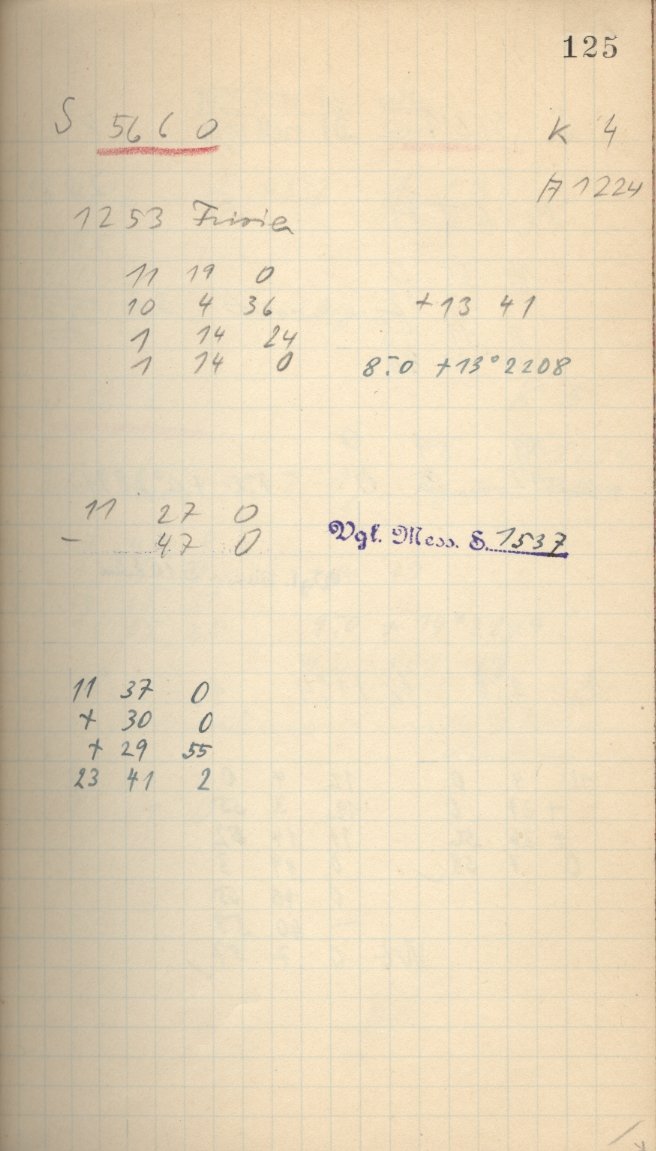 125
S 5660 K 4
A 1224
1253 Frisia
11 19 0
10 4 36 +13 41
1 14 24
1 14 0 8.0 +13°2208
11 27 0
- 47 0 Vgl. Mess. S. 1537
11 37 0
+ 30 0
+ 29 55
23 41 2